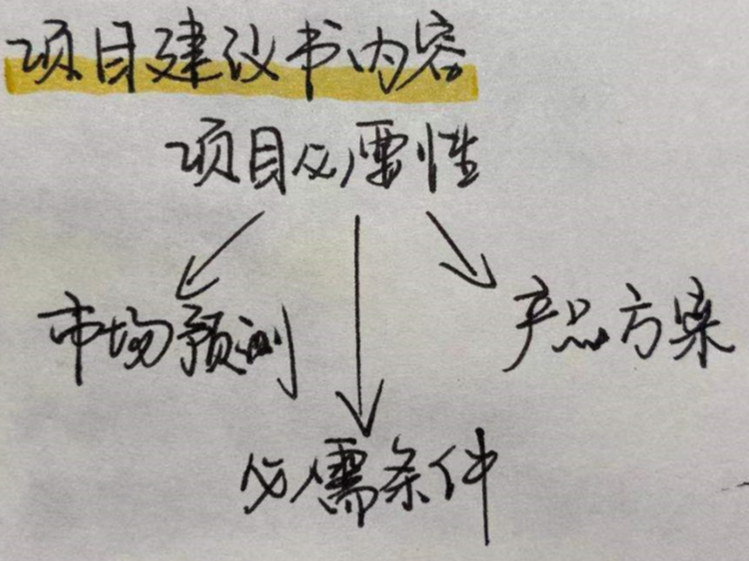 项目建议书内容
项目必要性
市场预测
产品方案
必需条件